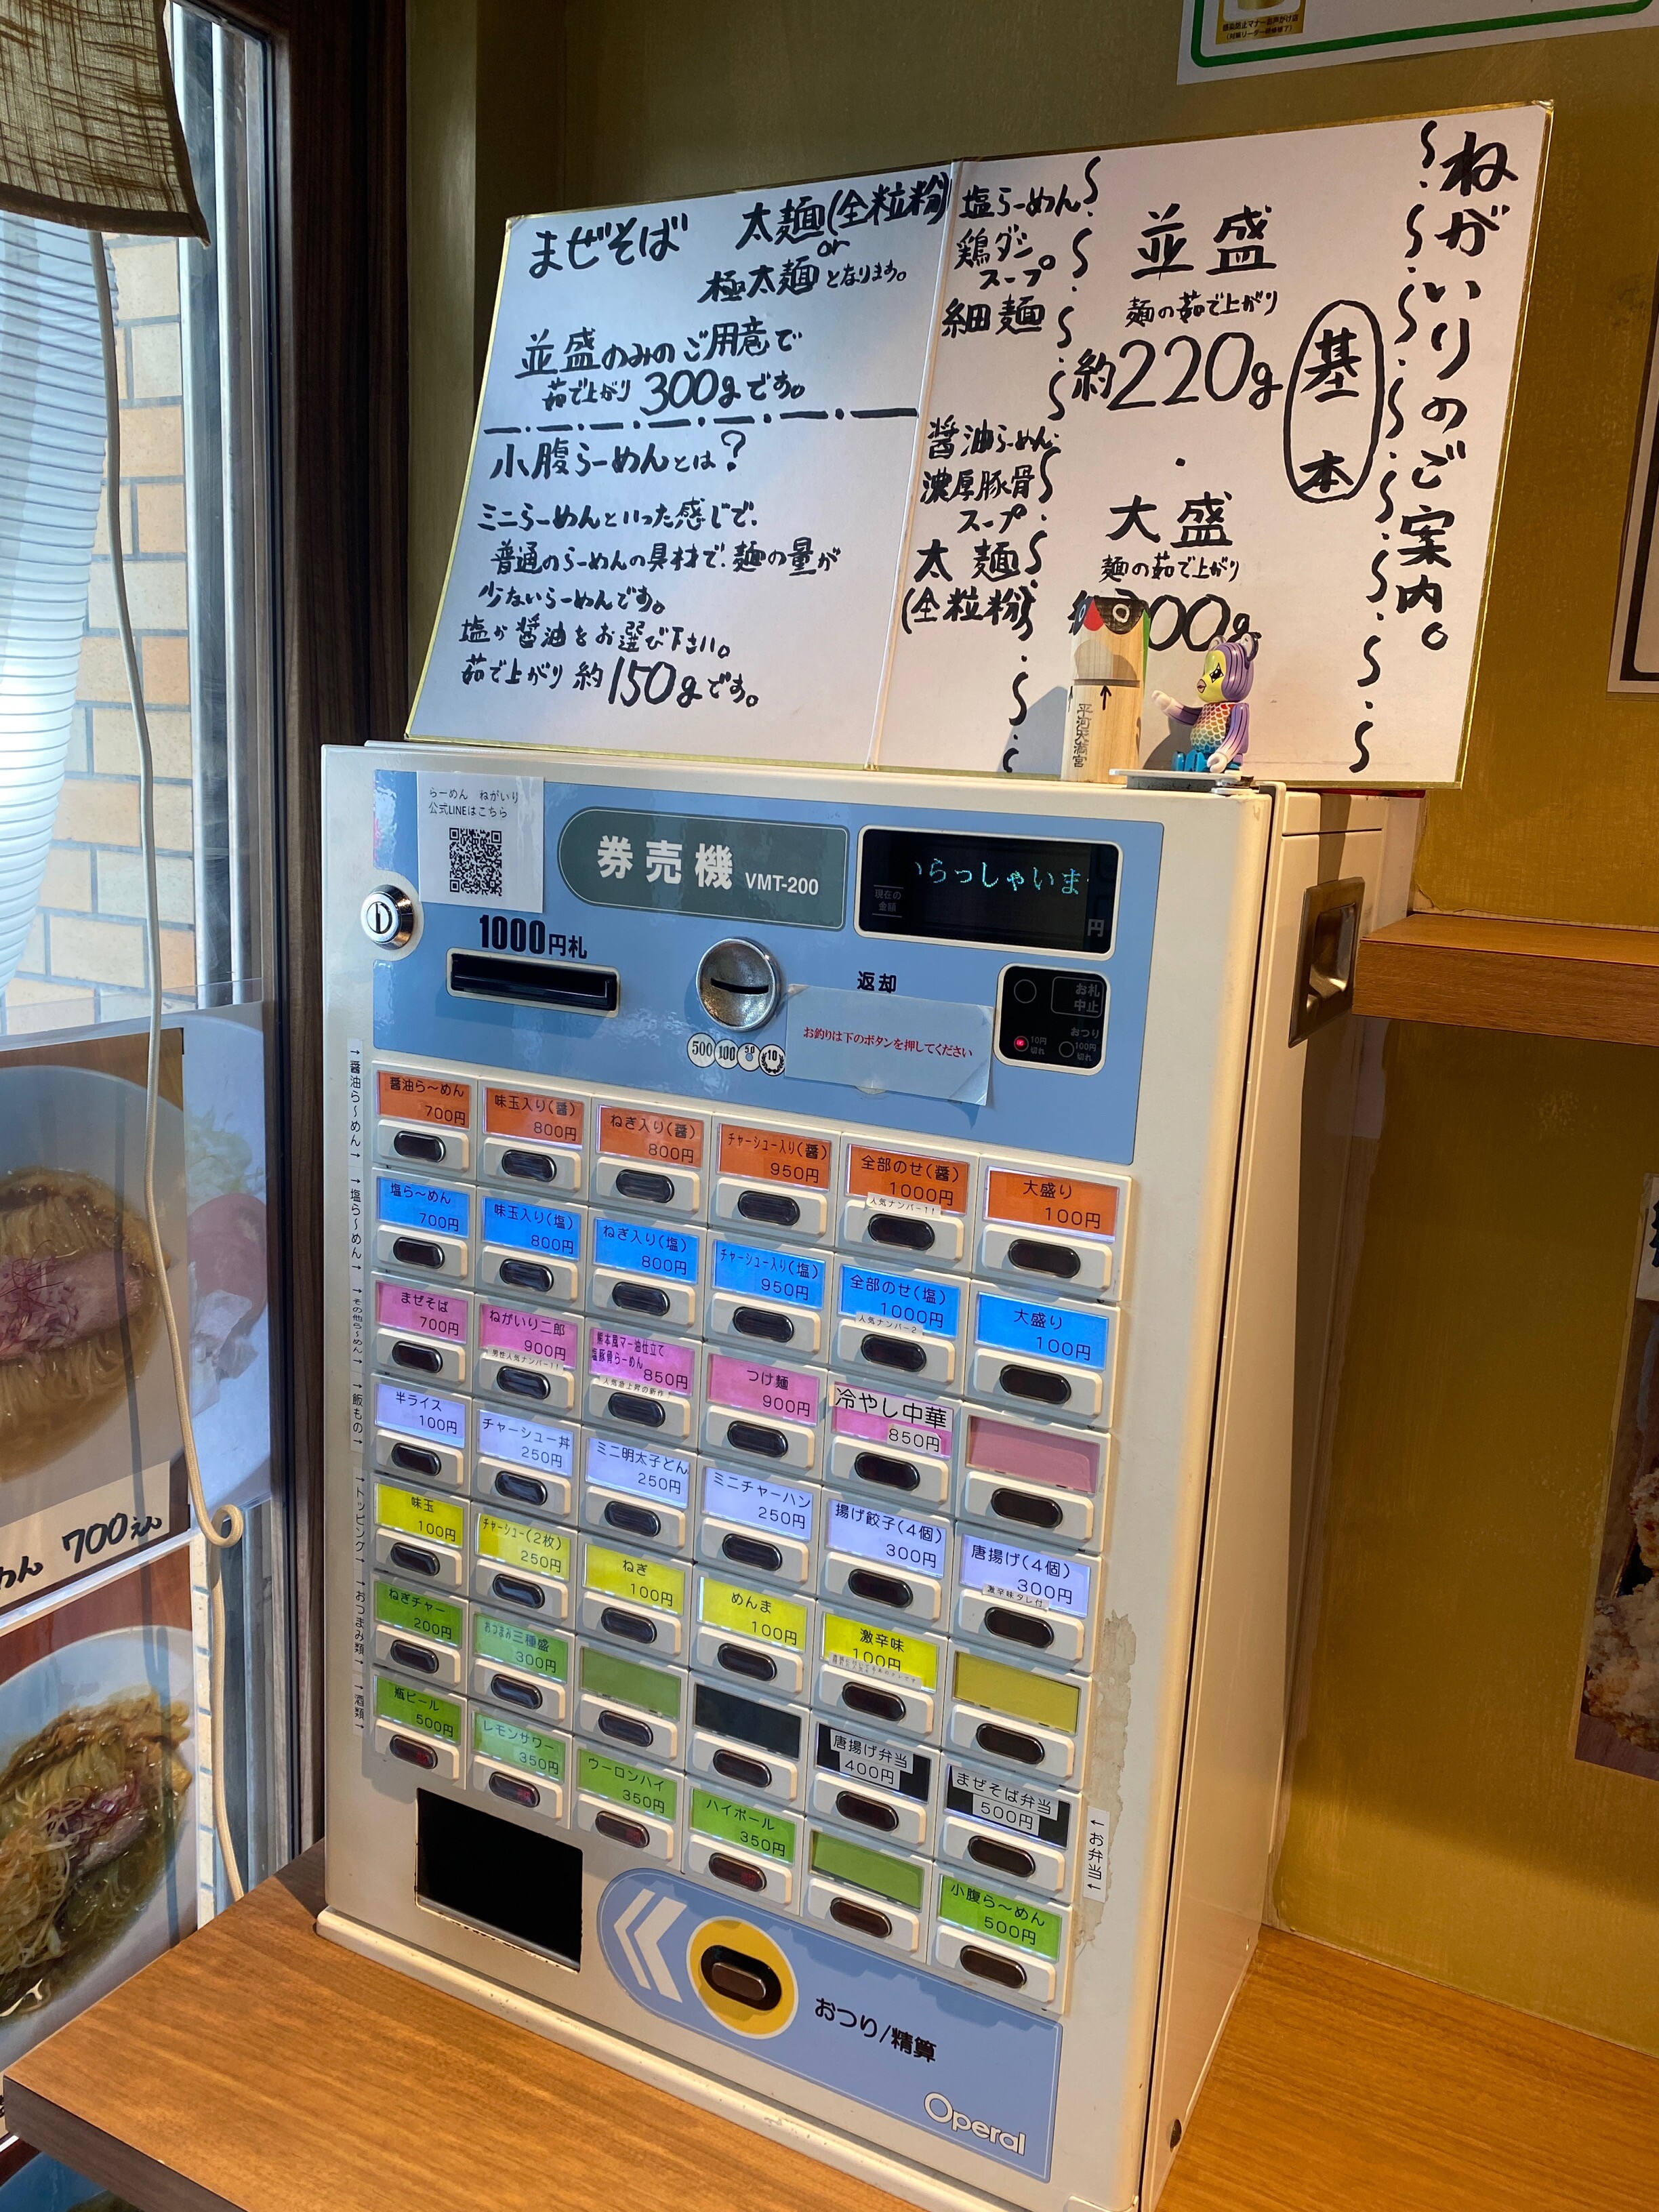 感染防止マナーお声がけ店
ねがいりのご案内。
基本
並盛
麺の茹で上がり
約220g
大盛
麺の茹で上がり
00g
塩らーめん
鶏ダシ
スープ
細麺
醤油らーめん
濃厚豚骨
スープ
太麺
(全粒粉)
まぜそば 太麺(全粒粉)
or
極太麺となります。
並盛のみのご用意で
茹で上がり300gです。
小腹らーめんとは?
ミニらーめんといった感じで、
普通のらーめんの具材で、麺の量が
少ないらーめんです。
塩か醤油をお選び下さい。
茹で上がり約150gです。
平河天満宮
らーめん ねがいり
公式LINEはこちら
券売機 VMT-200
いらっしゃいま
現在の
金額
円
1000円札
返却
お釣りは下のボタンを押してください
500 100 50 10
お札
中止
おつり
10円
切れ
100円
切れ
→醤油ら〜めん→
醤油ら〜めん
700円
味玉入り(醤)
800円
ねぎ入り(醤)
800円
チャーシュー入り(醤)
950円
全部のせ(醤)
1000円
人気ナンバー1!
大盛り
100円
→塩ら〜めん→
塩ら〜めん
700円
味玉入り(塩)
800円
ねぎ入り(塩)
800円
チャーシュー入り(塩)
950円
全部のせ(塩)
1000円
人気ナンバー2
大盛り
100円
→その他ら〜めん→
まぜそば
700円
ねがいり二郎
900円
男性人気ナンバー1!
熊本風マー油仕立て
塩豚骨らーめん
850円
人気急上昇の新作
つけ麺
900円
冷やし中華
850円
→飯もの→
半ライス
100円
チャーシュー丼
250円
ミニ明太子どん
250円
ミニチャーハン
250円
揚げ餃子(4個)
300円
唐揚げ(4個)
300円
激辛味タレ付
→トッピング→
味玉
100円
チャーシュー(2枚)
250円
ねぎ
100円
めんま
100円
激辛味
100円
→おつまみ類→
ねぎチャー
200円
おつまみ三種盛
300円
唐揚げ弁当
400円
まぜそば弁当
500円
←お弁当←
→酒類→
瓶ビール
500円
レモンサワー
350円
ウーロンハイ
350円
ハイボール
350円
小腹ら〜めん
500円
おつり/精算
Operal
めん 700えん